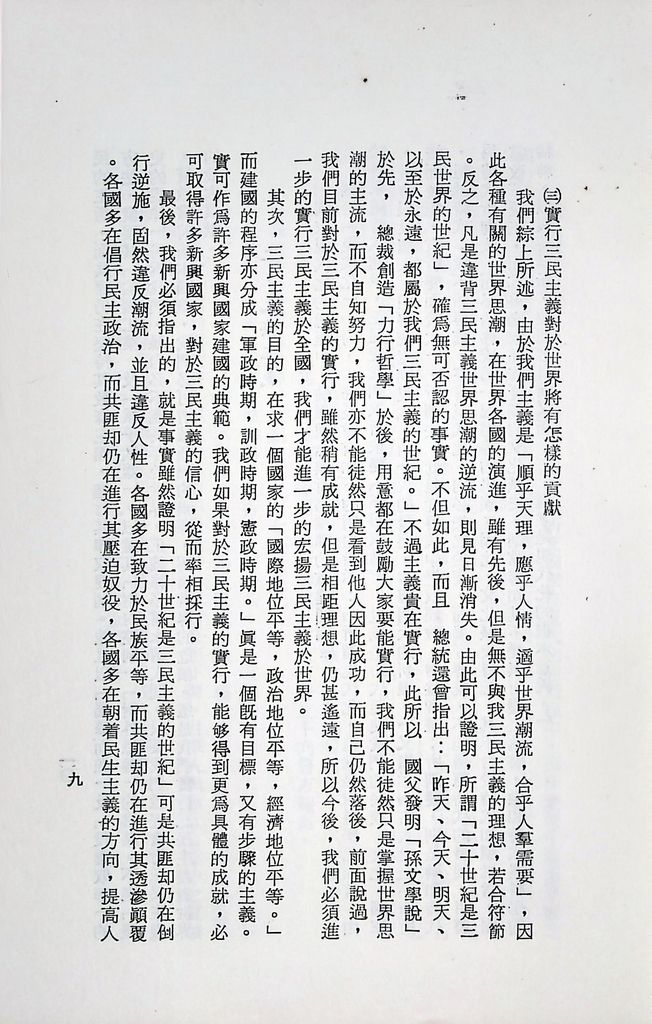 ㈢實行三民主義對於世界將有怎樣的貢獻
我們綜上所述，由於我們主義是「順乎天理，應乎人情，適乎世界潮流，合乎人羣需要」，因
此各種有關的世界思潮，在世界各國的演進，雖有先後，但是無不與我三民主義的理想，若合符節
。反之，凡是違背三民主義世界思潮的逆流，則見日漸消失。由此可以證明，所謂「二十世紀是三
民世界的世紀」，確爲無可否認的事實。不但如此，而且　總統還曾指出：「昨天、今天、明天、
以至於永遠，都屬於我們三民主義的世紀。」不過主義貴在實行，此所以　國父發明「孫文學說」
於先，　總裁創造「力行哲學」於後，用意都在鼓勵大家要能實行，我們不能徒然只是掌握世界思
潮的主流，而不自知努力，我們亦不能徒然只是看到他人因此成功，而自己仍然落後，前面說過，
我們目前對於三民主義的實行，雖然稍有成就，但是相距理想，仍甚遙遠，所以今後，我們必須進
一步的實行三民主義於全國，我們才能進一步的宏揚三民主義於世界。
其次，三民主義的目的，在求一個國家的「國際地位平等，政治地位平等，經濟地位平等。」
而建國的程序亦分成「軍政時期，訓政時期，憲政時期。」眞是一個旣有目標，又有步驟的主義。
實可作爲許多新興國家建國的典範。我們如果對於三民主義的實行，能够得到更爲具體的成就，必
可取得許多新興國家，對於三民主義的信心，從而率相採行。
最後，我們必須指出的，就是事實雖然證明「二十世紀是三民主義的世紀」可是共匪却仍在倒
行逆施，固然違反潮流，並且違反人性。各國多在致力於民族平等，而共匪却仍在進行其透滲顚覆
。各國多在倡行民主政治，而共匪却仍在進行其壓迫奴役，各國多在朝着民生主義的方向，提高人
九